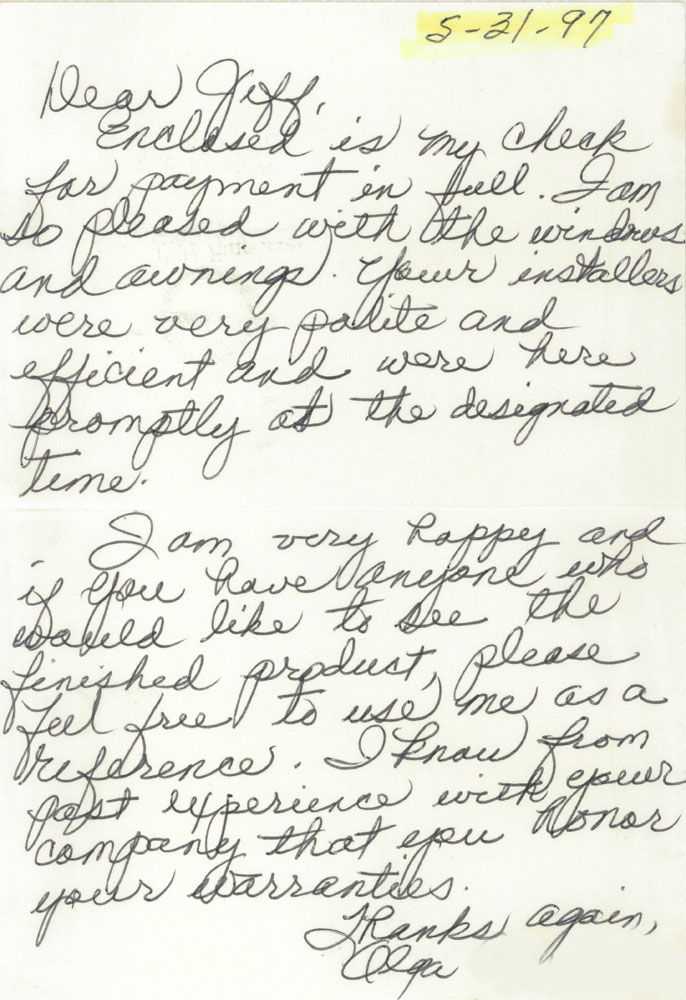 5-31-97
Dear Jeff,
Enclosed is my check
for payment in full. I am
so pleased with the windows
and awnings. Your installers
were very polite and
efficient and were here
promptly at the designated
time.
I am very happy and
if you have anyone who
would like to see the
finished product, please
feel free to use me as a
reference. I know from
past experience with your
company that you honor
your warranties.
Thanks again,
Olga